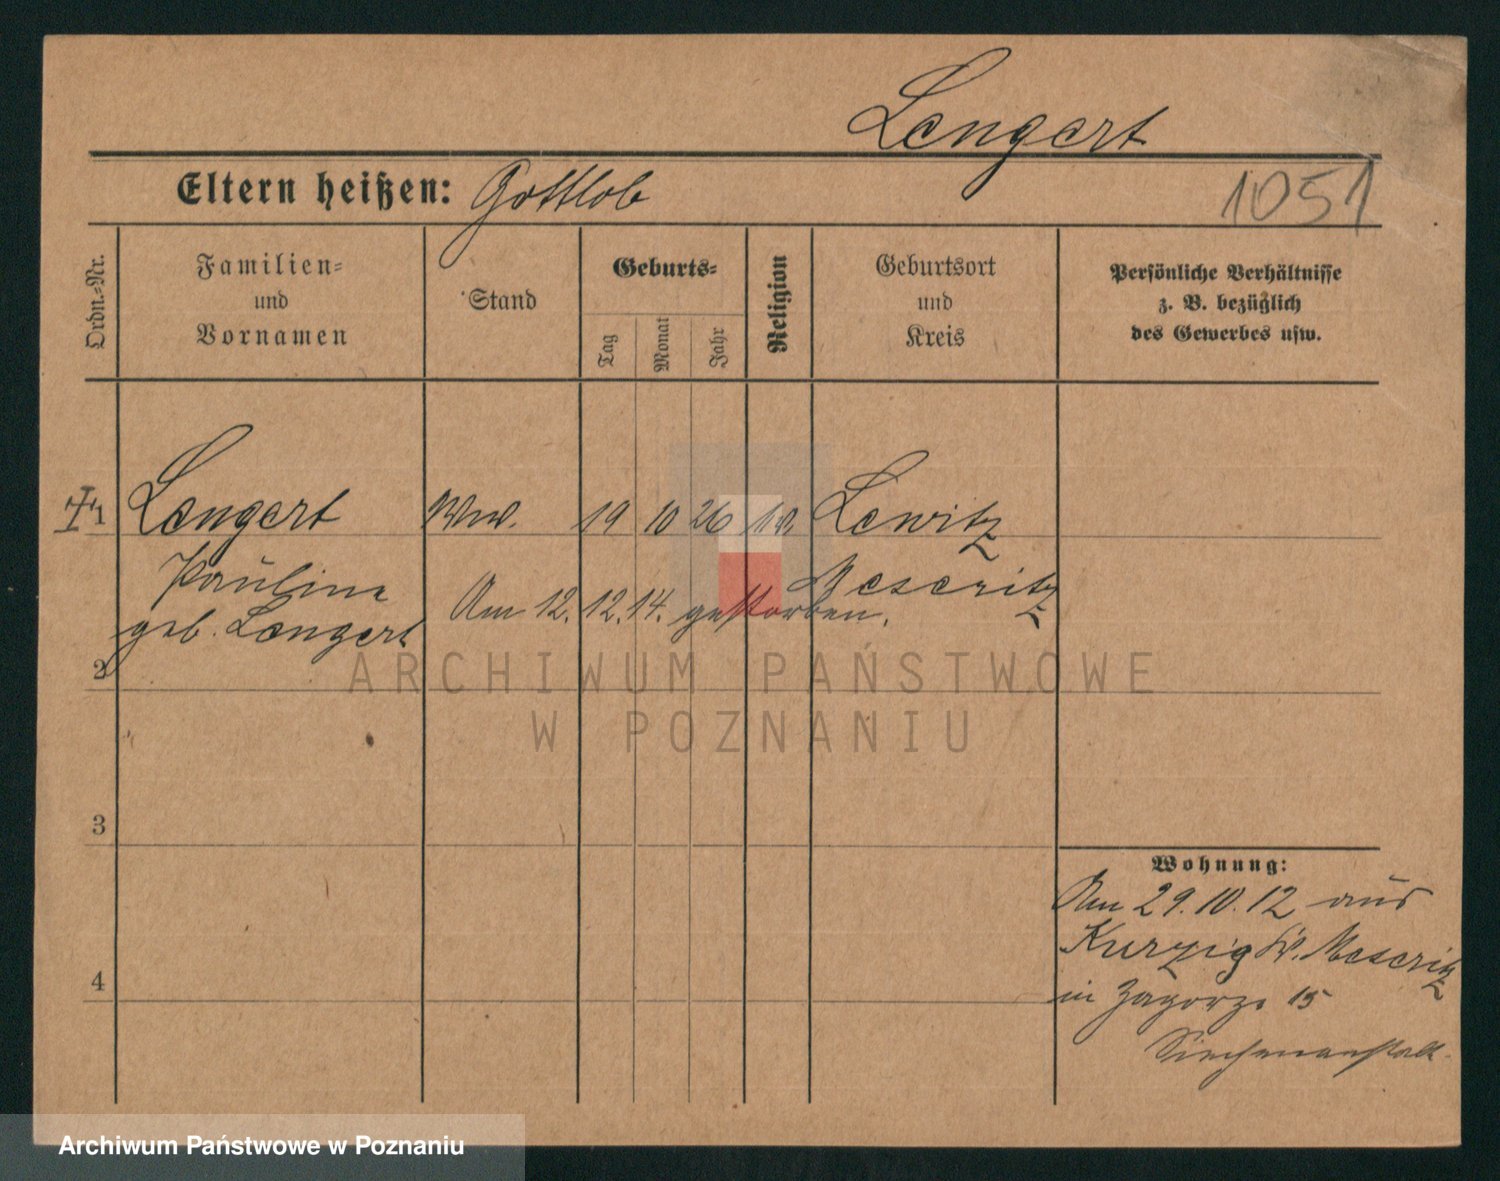 Lengert
Eltern heißen: Gottlob
1051
Ordn.-Nr.
Familien-
und
Vornamen
Stand
Geburts-
Tag
Monat
Jahr
Religion
Geburtsort
und
Kreis
Persönliche Verhältnisse
z. B. bezüglich
des Gewerbes usw.
1 Lengert Ww. 19 10 26 Lewitz
Pauline Meseritz
geb. Lengert Am 12. 12. 14. gestorben.
2
ARCHIWUM PAŃSTWOWE
W POZNANIU
3
Wohnung:
Am 29. 10. 12 aus
Kurzig Kr. Meseritz
4
in Zagorze 15
Siechenanstalt.
Archiwum Państwowe w Poznaniu